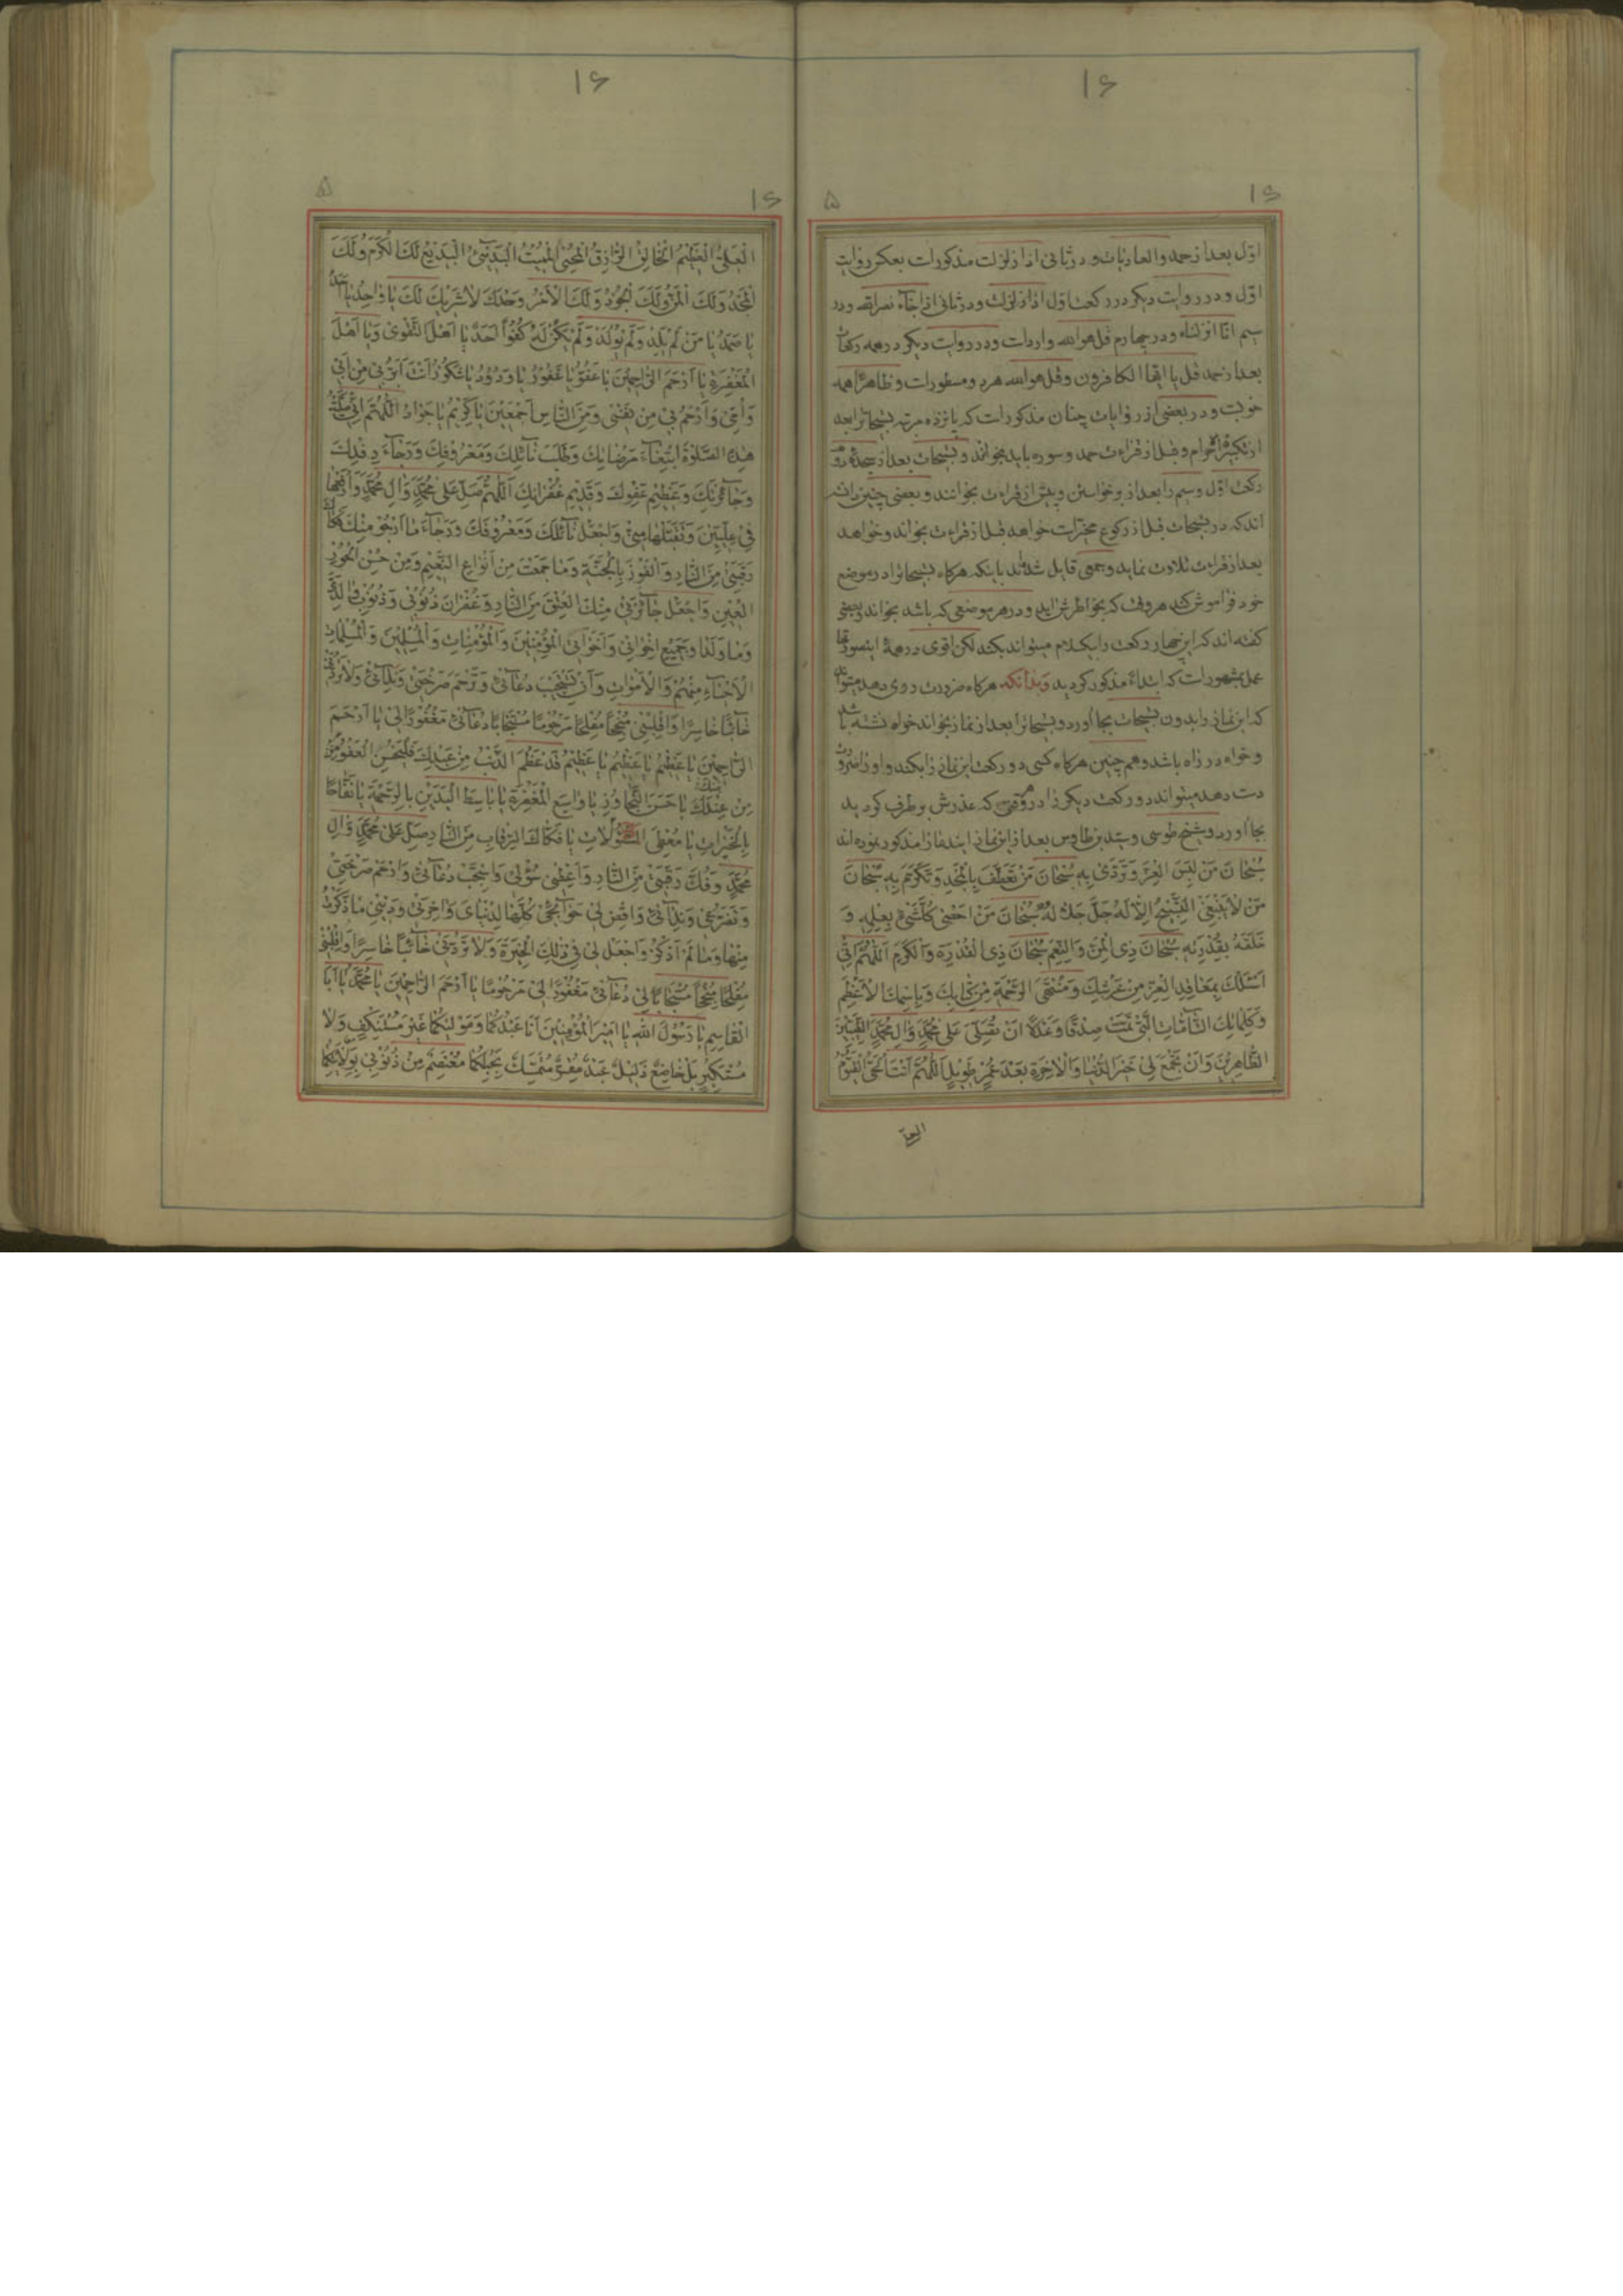 ۱۶
۱۶
۵
اوّل بعد از حمد والعادیات و در ثانی اذا زلزلت مذکورات بعکس روایت
اوّل و در روایت دیکر در رکعت اوّل اذا زلزلت و در ثانی اذا جاء نصرالله و در
سیم انّا انزلناه و در چهارم قل هوالله وارداست و در روایت دیکر در همه رکعات
بعد از حمد قل یا ایها الکافرون و قل هوالله هر دو مسطورات و ظاهرًا همه
خوبست و در بعضی از روایات چنان مذکورات که پانزده مرتبه تسبیحاترا بعد
از تکبیرة الاحرام و قبل از قراءت حمد و سوره باید بخواند و تسبیحات بعد از سجده دوم
رکعت اوّل و سیم را بعد از برخواستن و پیش از قراءت بخوانند و بعضی چنین دانسته
اند که در تسبیحات قبل از رکوع مخیرات خواهد قبل از قراءت بخواند و خواهد
بعد از قراءت تلاوت نماید و جمعی قایل شده‌اند باینکه هرکاه تسبیحاترا در موضع
خود فراموش کند هر وقت که بخاطرش اید و در هر موضعی که باشد بخواند و بعضی
کفته‌اند که این چهار رکعت را بیکسلام میتواند بکند لکن اقوی در همهٔ اینصورتها
عمل بمشهورات که ابتداءً مذکور کردید وبدانکه هرکاه ضرورت روی دهد میتواند
که این نماز را بدون تسبیحات بجا اورد و تسبیحاترا بعد از نماز بخواند خواه نشسته باشد
و خواه در راه باشد و هم چنین هرکاه کسی دو رکعت این نماز را بکند و او را ضرورت
دست دهد میتواند دو رکعت دیکر را در وقتی که عذرش برطرف کردید
بجا اورد و شیخ طوسی و سید بن طاوس بعد از این نماز ایندعا را مذکور نموده‌اند
سُبْحَانَ مَنْ لَبِسَ الْعِزَّ وَتَرَدّٰى بِهِ سُبْحَانَ مَنْ تَعَطَّفَ بِالْمَجْدِ وَتَكَرَّمَ بِهِ سُبْحَانَ
مَنْ لٰا يَنْبَغِي التَّسْبِيحُ اِلّٰا لَهُ جَلَّ جَلٰالُهُ سُبْحَانَ مَنْ اَحْصٰى كُلَّ شَيْءٍ بِعِلْمِهِ وَ
خَلَقَهُ بِقُدْرَتِهِ سُبْحَانَ ذِي الْمَنِّ وَالنِّعَمِ سُبْحَانَ ذِي الْقُدْرَةِ وَالْكَرَمِ اَللّٰهُمَّ اِنّي
اَسْئَلُكَ بِمَعَاقِدِ الْعِزِّ مِنْ عَرْشِكَ وَمُنْتَهَى الرَّحْمَةِ مِنْ كِتَابِكَ وَبِاسْمِكَ الْاَعْظَمِ
وَكَلِمَاتِكَ التَّامّٰاتِ الَّتي تَمَّتْ صِدْقًا وَعَدْلًا اَنْ تُصَلِّيَ عَلٰى مُحَمَّدٍ وَاٰلِ مُحَمَّدٍ الطَّيِّبِينَ
الطّٰاهِرِينَ وَاَنْ تَجْمَعَ لِي خَيْرَ الدُّنْيٰا وَالْاٰخِرَةِ بَعْدَ عُمْرٍ طَوِيلٍ اَللّٰهُمَّ اَنْتَ الْحَيُّ الْقَيُّومُ
العلیّ
۱۶
۵
۱۶
الْعَلِيُّ الْعَظِيمُ الْخَالِقُ الرَّازِقُ الْمُحْيِي الْمُمِيتُ الْبَدِيءُ الْبَدِيعُ لَكَ الْكَرَمُ وَلَكَ
الْمَجْدُ وَلَكَ الْمَنُّ وَلَكَ الْجُودُ وَلَكَ الْاَمْرُ وَحْدَكَ لٰا شَرِيكَ لَكَ يٰا وٰاحِدُ يٰا اَحَدُ
يٰا صَمَدُ يٰا مَنْ لَمْ يَلِدْ وَلَمْ يُولَدْ وَلَمْ يَكُنْ لَهُ كُفُوًا اَحَدٌ يٰا اَهْلَ التَّقْوٰى وَيٰا اَهْلَ
الْمَغْفِرَةِ يٰا اَرْحَمَ الرّٰاحِمِينَ يٰا عَفُوُّ يٰا غَفُورُ يٰا وَدُودُ يٰا شَكُورُ اَنْتَ اَبَرُّ بي مِنْ اَبي
وَاُمّي وَاَرْحَمُ بي مِنْ نَفْسي وَمِنَ النّٰاسِ اَجْمَعِينَ يٰا كَرِيمُ يٰا جَوٰادُ اَللّٰهُمَّ اِنّي صَلَّيْتُ
هٰذِهِ الصَّلٰوةَ ابْتِغٰاءَ مَرْضٰاتِكَ وَطَلَبَ نٰائِلِكَ وَمَعْرُوفِكَ وَرَجٰاءَ رِفْدِكَ
وَجٰائِزَتِكَ وَعَظِيمِ عَفْوِكَ وَقَدِيمِ غُفْرٰانِكَ اَللّٰهُمَّ صَلِّ عَلٰى مُحَمَّدٍ وَاٰلِ مُحَمَّدٍ وَارْفَعْهٰا
في عِلِّيِّينَ وَتَقَبَّلْهٰا مِنّي وَاجْعَلْ نٰائِلَكَ وَمَعْرُوفَكَ وَرَجٰاءَ مٰا اَرْجُو مِنْكَ فَكٰاكَ
رَقَبَتي مِنَ النّٰارِ وَالْفَوْزَ بِالْجَنَّةِ وَمٰا جَمَعْتَ مِنْ اَنْوٰاعِ النَّعِيمِ وَمِنْ حُسْنِ الْحُورِ
الْعِينِ وَاجْعَلْ جٰائِزَتي مِنْكَ الْعِتْقَ مِنَ النّٰارِ وَغُفْرٰانَ ذُنُوبي وَذُنُوبِ وٰالِدَيَّ
وَمٰا وَلَدٰا وَجَمِيعِ اِخْوٰاني وَاَخَوٰاتِيَ الْمُؤْمِنِينَ وَالْمُؤْمِنٰاتِ وَالْمُسْلِمِينَ وَالْمُسْلِمٰاتِ
الْاَحْيٰاءِ مِنْهُمْ وَالْاَمْوٰاتِ وَاَنْ تَسْتَجِيبَ دُعٰائي وَتَرْحَمَ صَرْخَتي وَنِدٰائي وَلٰا تَرُدَّني
خٰائِبًا خٰاسِرًا وَاقْلِبْني مُنْجِحًا مُفْلِحًا مَرْحُومًا مُسْتَجٰابًا دُعٰائي مَغْفُورًا لي يٰا اَرْحَمَ
الرّٰاحِمِينَ يٰا عَظِيمُ يٰا عَظِيمُ يٰا عَظِيمُ قَدْ عَظُمَ الذَّنْبُ مِنْ عَبْدِكَ فَلْيَحْسُنِ الْعَفْوُ مِنْكَ
مِنْ عِنْدِكَ يٰا حَسَنَ التَّجٰاوُزِ يٰا وٰاسِعَ الْمَغْفِرَةِ يٰا بٰاسِطَ الْيَدَيْنِ بِالرَّحْمَةِ يٰا نَفّٰاحًا
بِالْخَيْرٰاتِ يٰا مُعْطِيَ السُّؤُلٰاتِ يٰا فَكّٰاكَ الرِّقٰابِ مِنَ النّٰارِ صَلِّ عَلٰى مُحَمَّدٍ وَاٰلِ
مُحَمَّدٍ وَفُكَّ رَقَبَتي مِنَ النّٰارِ وَاَعْطِني سُؤْلي وَاسْتَجِبْ دُعٰائي وَارْحَمْ صَرْخَتي
وَتَضَرُّعي وَنِدٰائي وَاقْضِ لي حَوٰائِجي كُلَّهٰا لِدُنْيٰايَ وَاٰخِرَتي وَدِيني مٰا ذَكَرْتُ
مِنْهٰا وَمٰا لَمْ اَذْكُرْ وَاجْعَلْ لي في ذٰلِكَ الْخِيَرَةَ وَلٰا تَرُدَّني خٰائِبًا خٰاسِرًا وَاقْلِبْني
مُفْلِحًا مُنْجِحًا مُسْتَجٰابًا لي دُعٰائي مَغْفُورًا لي مَرْحُومًا يٰا اَرْحَمَ الرّٰاحِمِينَ يٰا مُحَمَّدُ يٰا اَبَا
الْقٰاسِمِ يٰا رَسُولَ اللهِ يٰا اَمِيرَ الْمُؤْمِنِينَ اَنٰا عَبْدُكُمٰا وَمَوْلٰيكُمٰا غَيْرَ مُسْتَنْكِفٍ وَلٰا
مُسْتَكْبِرٍ بَلْ خٰاضِعٌ ذَلِيلٌ عَبْدٌ مُقِرٌّ مُتَمَسِّكٌ بِحَبْلِكُمٰا مُعْتَصِمٌ مِنْ ذُنُوبي بِوِلٰايَتِكُمٰا